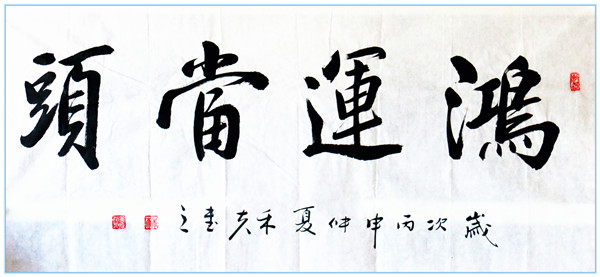 鴻運當頭
歲次丙申仲夏禾書之